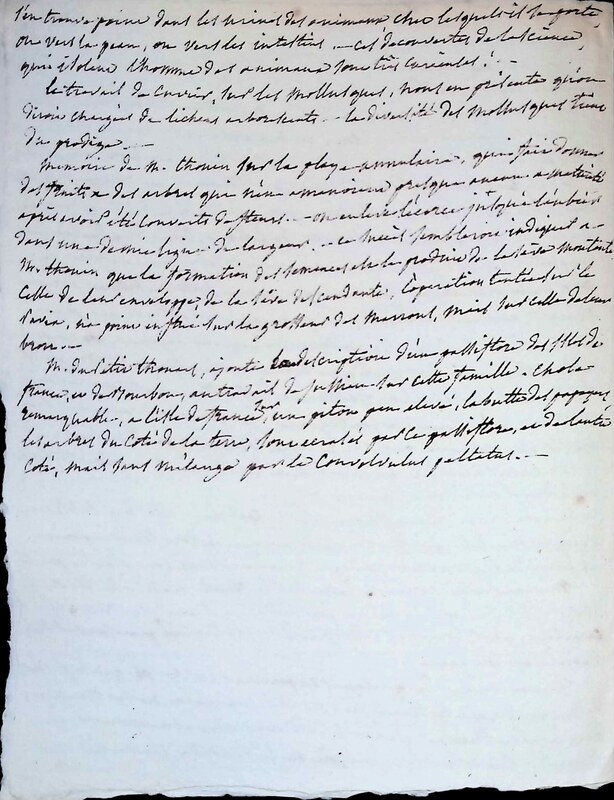 s'en trouve point dans les urines des animaux chez lesquels il se porte,
ou vers la peau, ou vers les intestins. — ces decouvertes de la science,
qui isolent l'homme des animaux sont très curieuses! —
le travail de Cuvier, sur les mollusques, nous en présente qu'on
diroit chargés de lichens arborescents. — la diversité des mollusques tient
du prodige. —
memoire de m. thouin sur la playe annulaire, qui fait donner
des fruits a des arbres qui n'en amenoient presque aucun a maturité
après avoir été couverts de fleurs. — on enleve l'écorce jusque l'aubier
dans une demie ligne de largeur. — ce succès sembleroit indiquer a
m. thouin que la formation des semences est le produit de la sève montante
celle de leur enveloppe, de la sève descendante. l'operation tentée sur le
pavia, n'a point influé sur la grosseur des marrons, mais sur celle de leur
brou. —
M. du Petit thouars, ajoute la description d'une passiflore des isles de
france, et de Bourbon, au travail de Jussieu sur cette famille. chose
remarquable, a l'isle de france, sur un piton peu elevé, la butte des papayes
les arbres du coté de la terre, sont ecrasés par ce passiflore, et de l'autre
coté, mais sans mélange par le Convolvulus peltatus. —